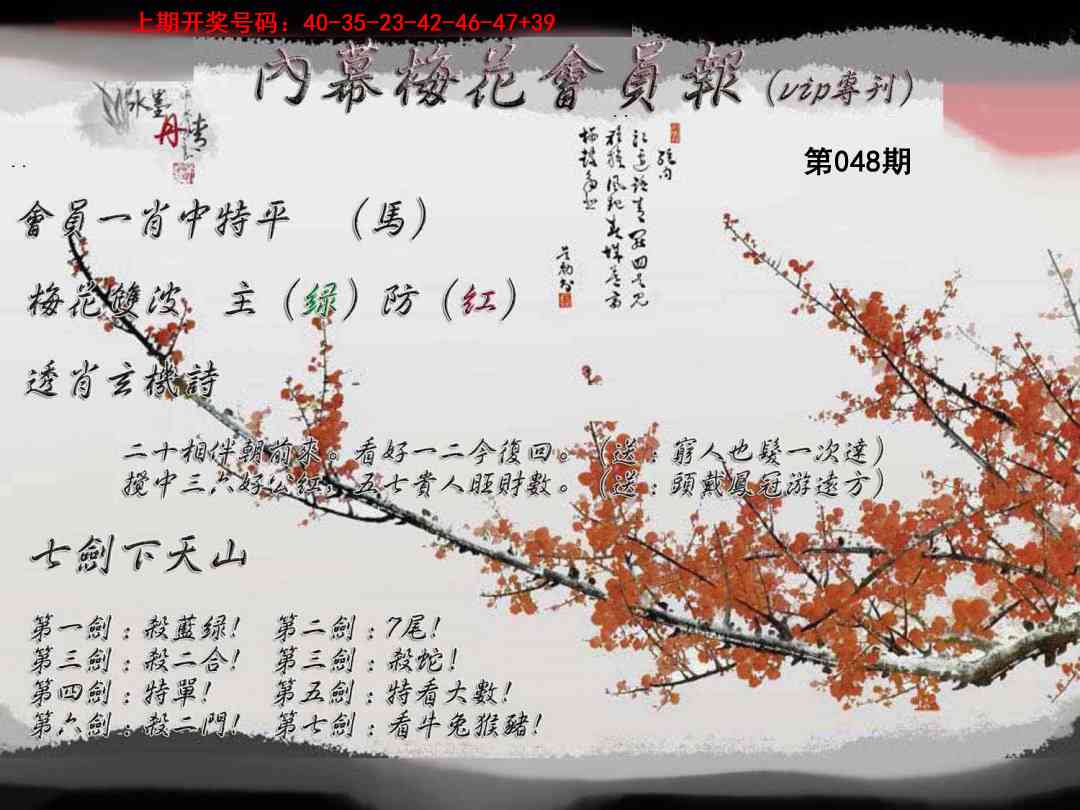 上期开奖号码：40-35-23-42-46-47+39
內幕梅花會員報（vip專刊）
水墨
丹青
第048期
會員一肖中特平 （馬）
梅花雙波 主（绿）防（红）
透肖玄機詩
二十相伴朝前來。看好一二今復回。（送：窮人也髮一次達）
攪中三六好公紅，五七貴人旺財數。（送：頭戴鳳冠游遠方）
七劍下天山
第一劍：殺藍绿！ 第二劍：7尾！
第三劍：殺二合！ 第三劍：殺蛇！
第四劍：特單！ 第五劍：特看大數！
第六劍：殺二門！ 第七劍：看牛兔猴豬！